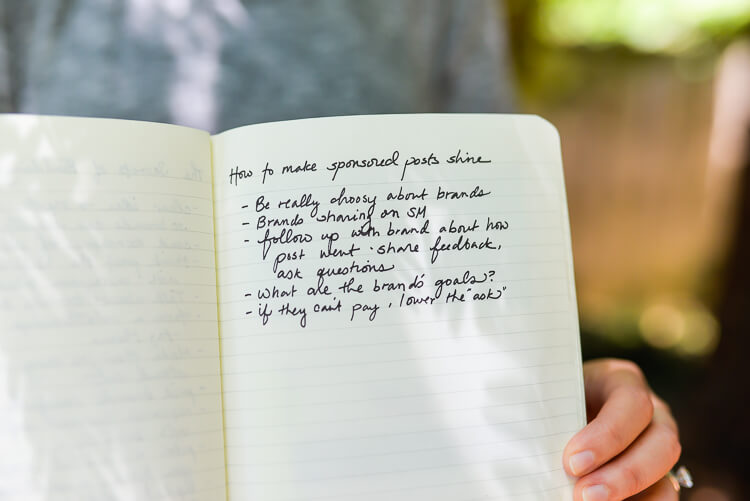 How to make sponsored posts shine
- Be really choosy about brands
- Brands sharing on SM
- follow up with brand about how
post went · share feedback,
ask questions
- what are the brand's goals?
- if they can't pay, lower the "ask"